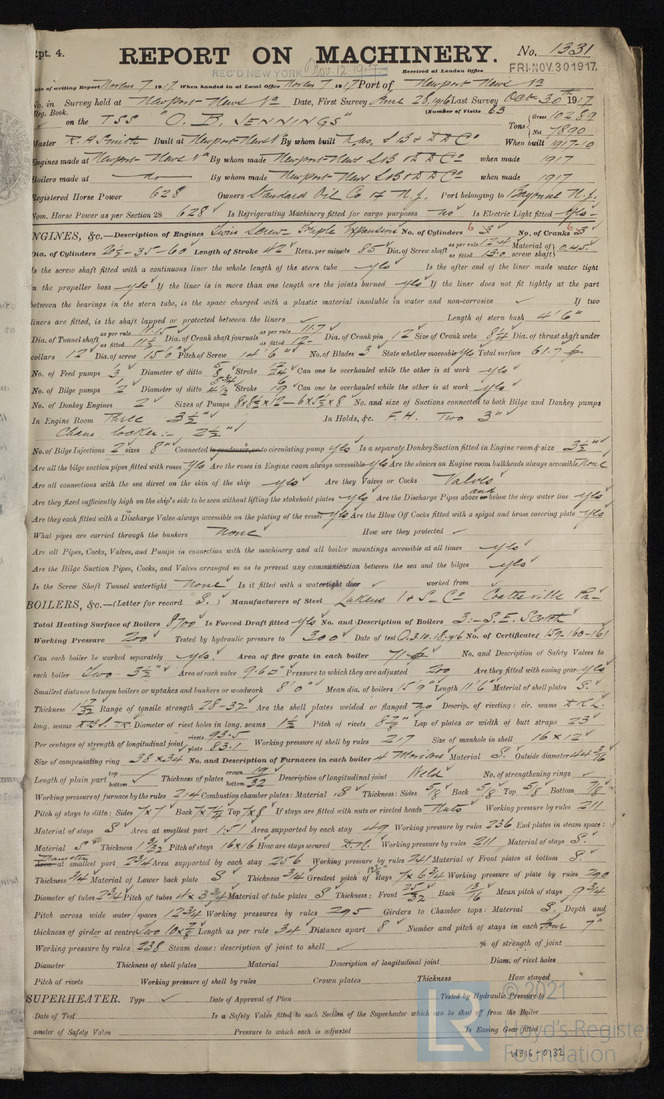 Rpt. 4.
REPORT ON MACHINERY.
No. 1331
REC'D NEW YORK Nov. 12 1917
Received at London Office
FRI. NOV. 30 1917.
Date of writing Report 1917 When handed in at Local Office 1917 Port of Newport News Va
No. in Survey held at Newport News Va Date, First Survey June 28, 1916 Last Survey Oct 30th 1917
Reg. Book. (Number of Visits 63
on the TSS "O. B. JENNINGS" Tons { Gross 10289 Net 7890
Master Built at Newport News Va By whom built When built 1917-10
Engines made at Newport News Va By whom made Newport News S B & D D Co when made 1917
Boilers made at do By whom made Newport News S B & D D Co when made 1917
Registered Horse Power 628 Owners Standard Oil Co of N.J. Port belonging to Bayonne N.J.
Nom. Horse Power as per Section 28 628 Is Refrigerating Machinery fitted for cargo purposes no Is Electric Light fitted yes
ENGINES, &c.—Description of Engines Twin Screw Triple Expansion No. of Cylinders 3 No. of Cranks 3
Dia. of Cylinders Length of Stroke 42 Revs. per minute 85 Dia. of Screw shaft as per rule as fitted Material of screw shaft
Is the screw shaft fitted with a continuous liner the whole length of the stern tube yes Is the after end of the liner made water tight
in the propeller boss yes If the liner is in more than one length are the joints burned yes If the liner does not fit tightly at the part
between the bearings in the stern tube, is the space charged with a plastic material insoluble in water and non-corrosive If two
liners are fitted, is the shaft lapped or protected between the liners Length of stern bush 4'6"
Dia. of Tunnel shaft as per rule as fitted Dia. of Crank shaft journals as per rule as fitted Dia. of Crank pin 12 Size of Crank webs Dia. of thrust shaft under
collars 12 Dia. of screw 15'0" Pitch of Screw 14'6" No. of Blades 3 State whether moveable yes Total surface
No. of Feed pumps 3 Diameter of ditto Stroke Can one be overhauled while the other is at work yes
No. of Bilge pumps Diameter of ditto Stroke Can one be overhauled while the other is at work yes
No. of Donkey Engines 2 Sizes of Pumps No. and size of Suctions connected to both Bilge and Donkey pumps
In Engine Room Three 3½" In Holds, &c. F.H. Two 3"
2½"
No. of Bilge Injections 2 sizes 8" Connected to condenser, or to circulating pump yes Is a separate Donkey Suction fitted in Engine room & size 3½"
Are all the bilge suction pipes fitted with roses yes Are the roses in Engine room always accessible yes Are the sluices on Engine room bulkheads always accessible None
Are all connections with the sea direct on the skin of the ship yes Are they Valves or Cocks Valves
Are they fixed sufficiently high on the ship's side to be seen without lifting the stokehold plates yes Are the Discharge Pipes above and below the deep water line yes
Are they each fitted with a Discharge Valve always accessible on the plating of the vessel yes Are the Blow Off Cocks fitted with a spigot and brass covering plate yes
What pipes are carried through the bunkers None How are they protected
Are all Pipes, Cocks, Valves, and Pumps in connection with the machinery and all boiler mountings accessible at all times yes
Are the Bilge Suction Pipes, Cocks, and Valves arranged so as to prevent any communication between the sea and the bilges yes
Is the Screw Shaft Tunnel watertight None Is it fitted with a watertight door worked from
BOILERS, &c.—(Letter for record S.) Manufacturers of Steel Lukens I & S. Co Coatesville Pa
Total Heating Surface of Boilers 8700 Is Forced Draft fitted yes No. and Description of Boilers 3: S.E. Scotch
Working Pressure 200 Tested by hydraulic pressure to 300 Date of test No. of Certificate 159-160-161
Can each boiler be worked separately yes Area of fire grate in each boiler No. and Description of Safety Valves to
each boiler Two 3½" Area of each valve 9.62" Pressure to which they are adjusted 200 Are they fitted with easing gear yes
Smallest distance between boilers or uptakes and bunkers or woodwork 8'0" Mean dia. of boilers 15'9" Length 11'6" Material of shell plates S.
Thickness Range of tensile strength 28-32 Are the shell plates welded or flanged no Descrip. of riveting: cir. seams
long. seams Diameter of rivet holes in long. seams 1½ Pitch of rivets Lap of plates or width of butt straps 23
Per centages of strength of longitudinal joint rivets 93.5 plate 83.1 Working pressure of shell by rules 217 Size of manhole in shell 16 x 12
Size of compensating ring 38 x 34 No. and Description of Furnaces in each boiler 4 Morison Material S. Outside diameter
Length of plain part top bottom Thickness of plates crown bottom Description of longitudinal joint Weld No. of strengthening rings
Working pressure of furnace by the rules 214 Combustion chamber plates: Material S Thickness: Sides 5/8 Back 5/8 Top 5/8 Bottom 7/8
Pitch of stays to ditto: Sides 7x7 Back Top If stays are fitted with nuts or riveted heads Nuts Working pressure by rules 211
Material of stays S Area at smallest part 1.51 Area supported by each stay 49 Working pressure by rules 236 End plates in steam space:
Material S Thickness Pitch of stays 16x16 How are stays secured Working pressure by rules 211 Material of stays S.
Diameter at smallest part 2¾ Area supported by each stay 256 Working pressure by rules 241 Material of Front plates at bottom S
Thickness ¾ Material of Lower back plate S Thickness ¾ Greatest pitch of stays Working pressure of plate by rules 290
Diameter of tubes 2¾ Pitch of tubes 4 x 3¾ Material of tube plates S Thickness: Front Back Mean pitch of stays 9¾
Pitch across wide water spaces 12¾ Working pressures by rules 295 Girders to Chamber tops: Material S. Depth and
thickness of girder at centre Length as per rule 34 Distance apart 8 Number and pitch of stays in each Four 7"
Working pressure by rules 238 Steam dome: description of joint to shell % of strength of joint
Diameter Thickness of shell plates Material Description of longitudinal joint Diam. of rivet holes
Pitch of rivets Working pressure of shell by rules Crown plates Thickness How stayed
SUPERHEATER. Type Date of Approval of Plan Tested by Hydraulic Pressure to
Date of Test Is a Safety Valve fitted to each Section of the Superheater which can be shut off from the Boiler
Diameter of Safety Valve Pressure to which each is adjusted Is Easing Gear fitted
© 2021
LR
Lloyd's Register
Foundation
W316-0132